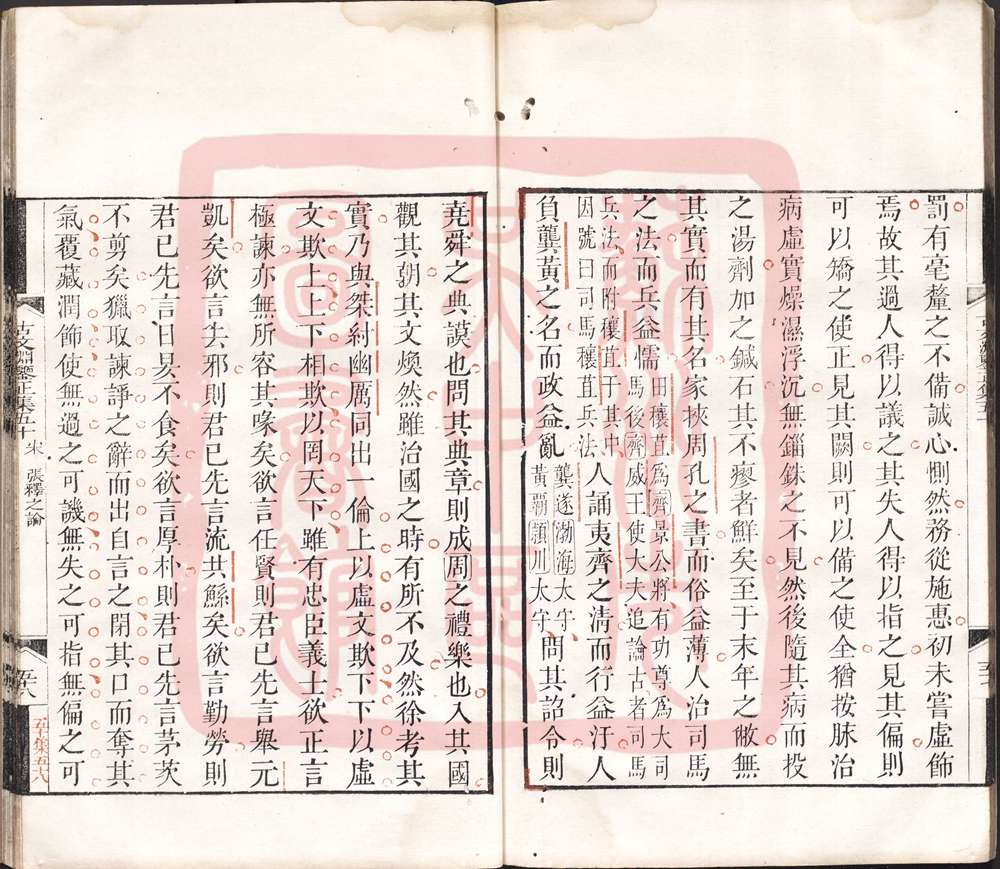 罰有毫釐之不備誠心惻然務從施惠初未嘗虛飾
焉故其過人得以議之其失人得以指之見其偏則
可以矯之使正見其闕則可以備之使全猶按脉治
病虛實燥濕浮沉無錙銖之不見然後隨其病而投
之湯劑加之鍼石其不瘳者鮮矣至于末年之敝無
其實而有其名家挾周孔之書而俗益薄人治司馬
之法而兵益懦田穰苴爲齊景公將有功尊爲大司
馬後齊威王使大夫追論古者司馬
兵法而附穰苴于其中
因號曰司馬穰苴兵法人誦夷齊之清而行益汙人
負龔黃之名而政益亂龔遂渤海太守
黃霸潁川太守問其詔令則
堯舜之典謨也問其典章則成周之禮樂也入其國
觀其朝其文煥然雖治國之時有所不及然徐考其
實乃與桀紂幽厲同出一倫上以虛文欺下下以虛
文欺上上下相欺以罔天下雖有忠臣義士欲正言
極諫亦無所容其喙矣欲言任賢則君已先言舉元
凱矣欲言去邪則君已先言流共鯀矣欲言勤勞則
君已先言日昃不食矣欲言厚朴則君已先言茅茨
不剪矣獵取諫諍之辭而出自言之閉其口而奪其
氣覆藏潤飾使無過之可譏無失之可指無偏之可
古文淵鑒正集五十 宋 張釋之論